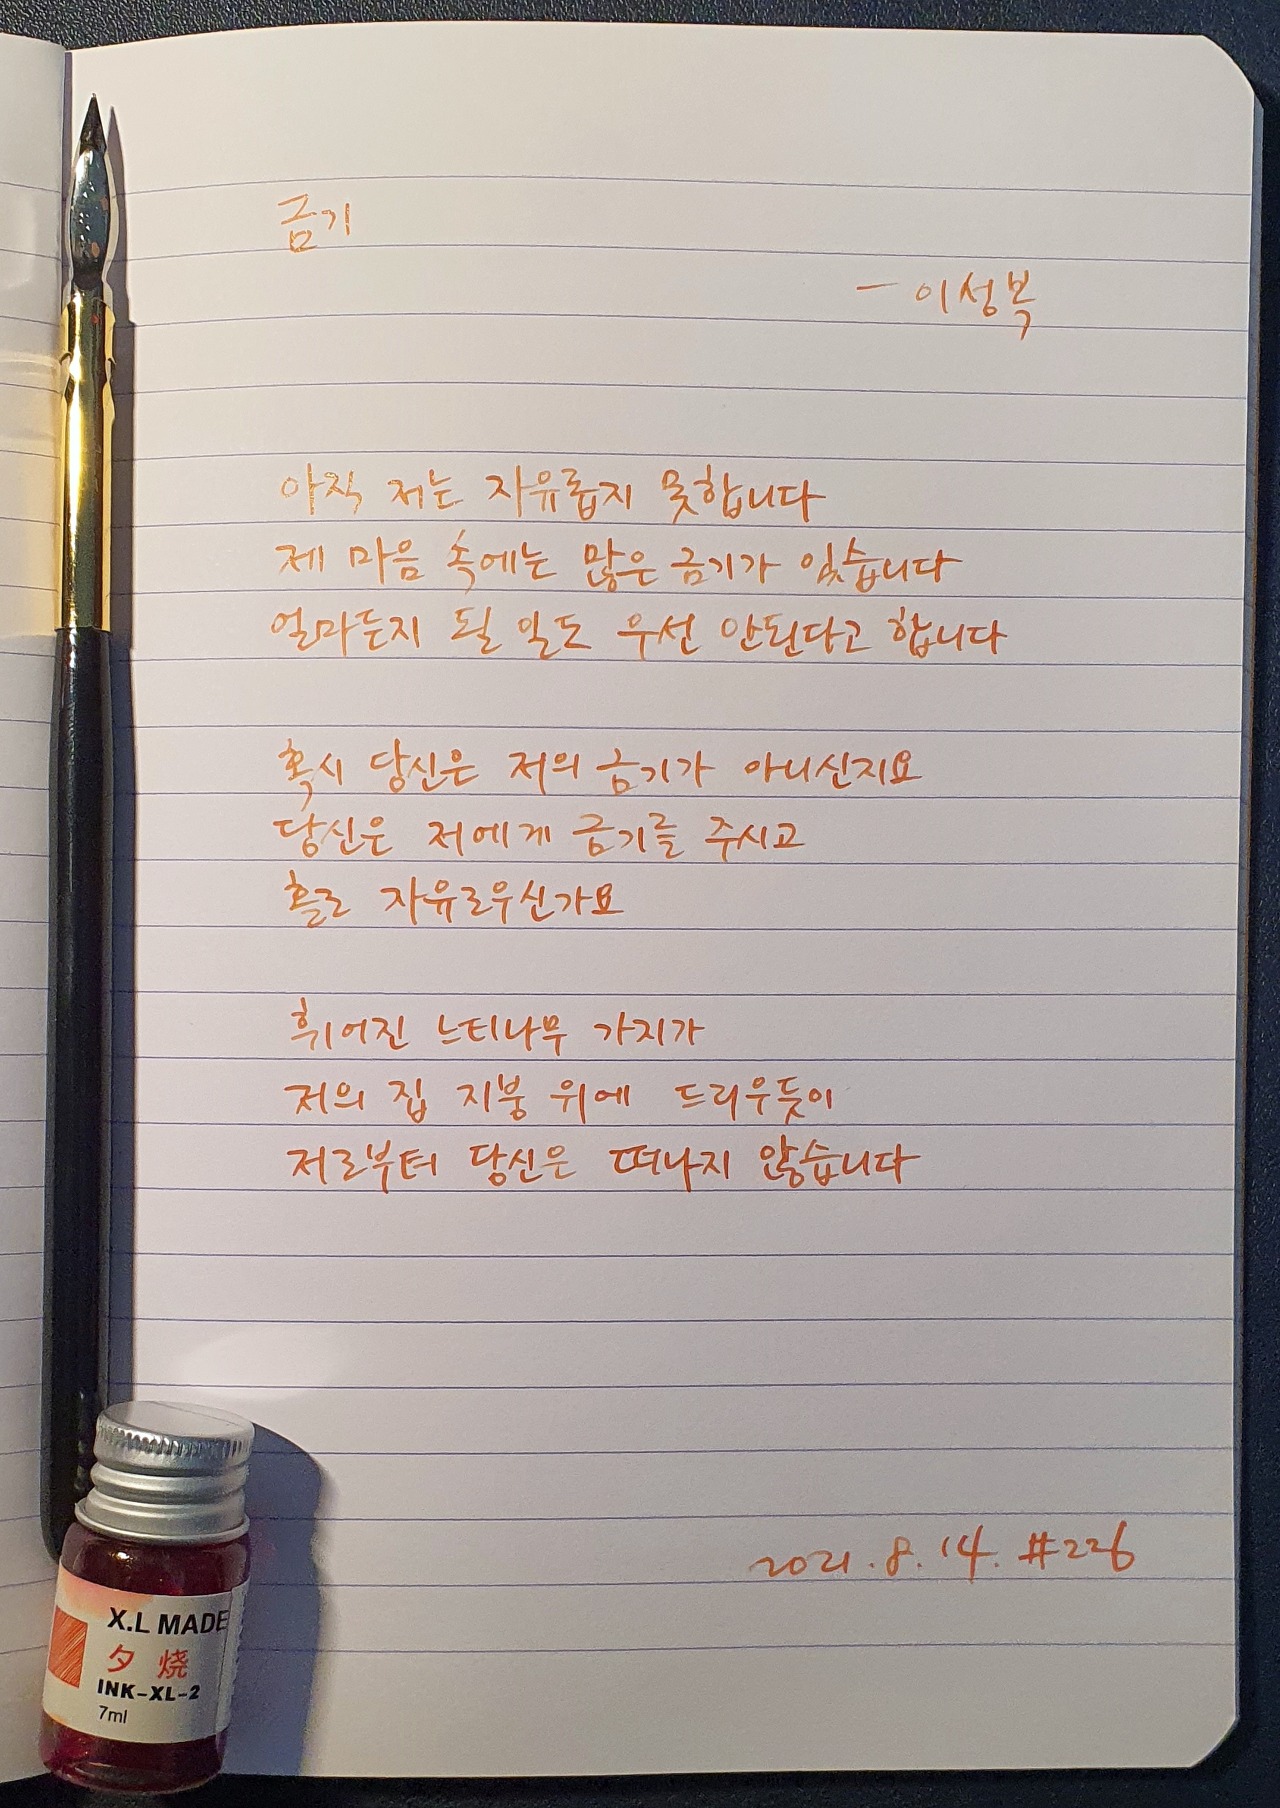 금기
- 이성복
아직 저는 자유롭지 못합니다
제 마음 속에는 많은 금기가 있습니다
얼마든지 될 일도 우선 안된다고 합니다
혹시 당신은 저의 금기가 아니신지요
당신은 저에게 금기를 주시고
홀로 자유로우신가요
휘어진 느티나무 가지가
저의 집 지붕 위에 드리우듯이
저로부터 당신은 떠나지 않습니다
2021.8.14. #226
X.L MADE
夕 烧
INK-XL-2
7ml